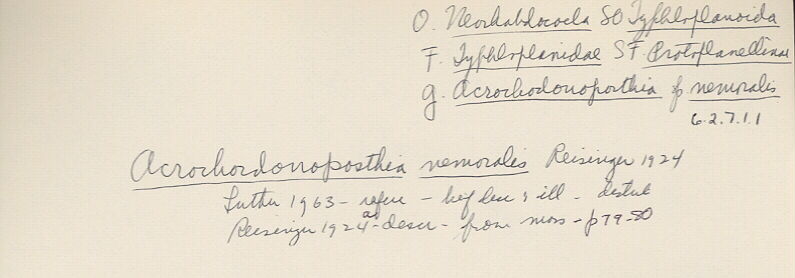 O. Neorhabdocoela SO Typhloplanoida
F. Typhloplanidae SF Protoplanellinae
g. Acrochordonoposthia sp nemoralis
6.2.7.1.1
Acrochordonoposthia nemoralis Reisinger 1924
Luther 1963 - refer - brf descr & ill - distrib
Reisinger 1924a - descr - from moss - p79-80